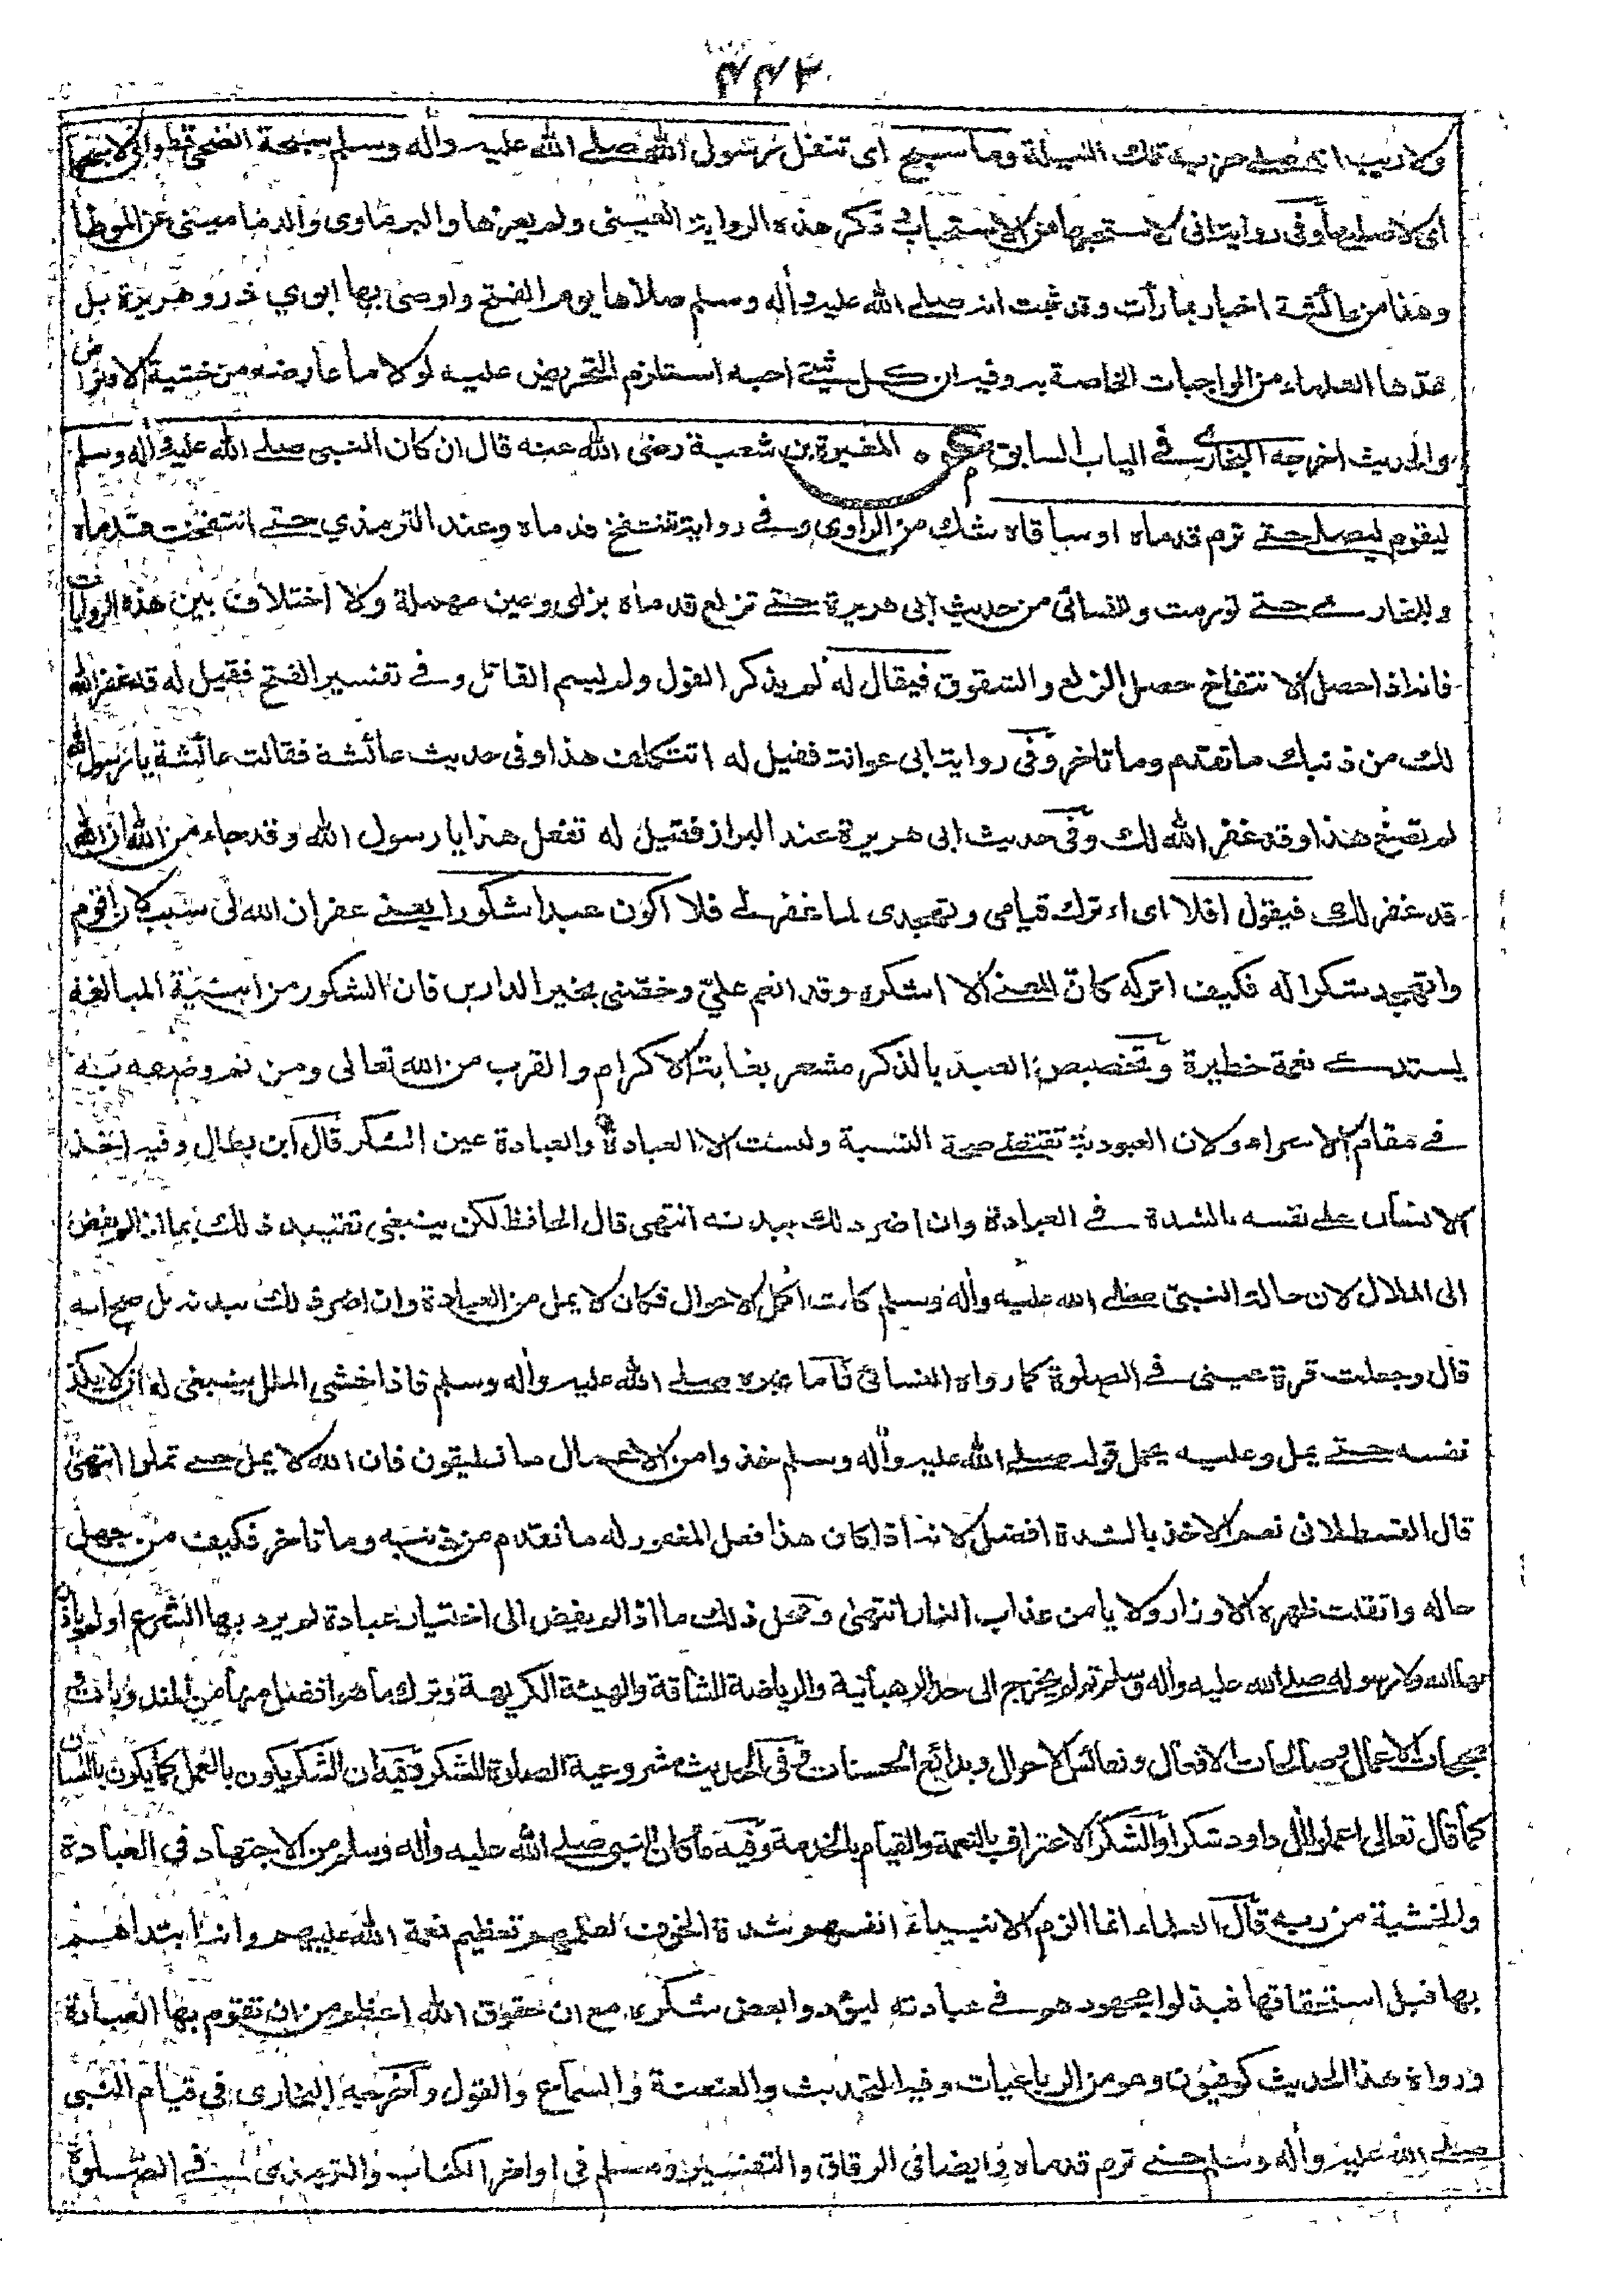 ٤٤٣
ولا ريب انه صلى حزبه تلك الليلة وما سبح اى تنفل رسول الله صلے الله عليه واٰله وسلم سبحة الضحى قط وانى لاسبحها
اى لاصليها وفى رواية انى لاستحبها من الاستحباب ذكر هذه الرواية العينى ولم يعزها والبرماوى والدمامينى عن الموطأ
وهذا من عائشة اخبار بما رأت وقد ثبت انه صلے الله عليه واٰله وسلم صلاها يوم الفتح واوصى بها ابوي ذر وهريرة بل
عدها العلماء من الواجبات الخاصة به وفيه ان كل شئ احبه استلزم التحريض عليه لولا ما عارضه من خشية الافتراض
والحديث اخرجه البخارى فے الباب السابق عن المغيرة بن شعبة رضى الله عنه قال ان كان النبى صلے الله عليه واٰله وسلم
ليقوم ليصلے حتے ترم قدماه او ساقاه شك من الراوى وفے رواية تنتفخ قدماه وعند الترمذي حتے انتفخت قدماه
وللبخارے حتے تورمت وللنسائى من حديث ابى هريرة حتے تزلع قدماه بزاى وعين مهملة ولا اختلاف بين هذه الروايات
فانه اذا حصل الانتفاخ حصل الزلع والتشقوق فيقال له لم يذكر القول ولم يسم القائل وفے تفسير الفتح فقيل له قد غفر الله
لك من ذنبك ما تقدم وما تاخر وفى رواية ابى عوانة فقيل له اتتكلف هذا وفى حديث عائشة فقالت عائشة يا رسول الله
لم تصنع هذا وقد غفر الله لك وفى حديث ابى هريرة عند البزار فقيل له تفعل هذا يا رسول الله وقد جاء من الله ان الله
قد غفر لك فيقول افلا اى اء ترك قيامى وتهجدى لما غفر لے فلا اكون عبدا شكورا يعنے غفران الله لى سبب لان اقوم
واتهجد شكرا له فكيف اتركه كان المعنے الا اشكره وقد انعم علي وخصنى بخير الدارين فان الشكور من ابنية المبالغة
يستدعے نعمة خطيرة وتخصيص العبد بالذكر مشعر بغاية الاكرام والقرب من الله تعالى ومن ثم وصفه به
فے مقام الاسراء ولان العبودية تقتضے صحة النسبة وليست الا العبادة والعبادة عين الشكر قال ابن بطال وفيه اخذ
الانسان على نفسه بالشدة فے العبادة وان اضر ذلك ببدنه انتهى قال الحافظ لكن ينبغى تقييد ذلك بما اذا لم يفض
الى الملال لان حالة النبى صلے الله عليه واٰله وسلم كانت اكمل الاحوال فكان لا يمل من العبادة وان اضر ذلك ببدنه بل صح انه
قال وجعلت قرة عينى فے الصلوة كما رواه النسائى فاما غيره صلے الله عليه واٰله وسلم فاذا خشى الملل ينبغى له ان لا يكد
نفسه حتے يمل وعليه يحمل قوله صلے الله عليه واٰله وسلم خذوا من الاعمال ما تطيقون فان الله لا يمل حتے تملوا انتهى
قال القسطلانى نعم الاخذ بالشدة افضل لانه اذا كان هذا فعل المغفور له ما تقدم من ذنبه وما تاخر فكيف من جهل
حاله واثقلت ظهره الاوزار ولا يامن عذاب النار انتهى ومحل ذلك ما اذا لم يفض الى اختيار عبادة لم يرد بها الشرع او لم ياذن
بها الله ولا رسوله صلے الله عليه واٰله وسلم ثم لم يخرج الى حد الرهبانية والرياضة الشاقة والهيئة الكريهة وترك ما هو افضل منها من المندوبات
الاعمال وصالحات الافعال ونفائس الاحوال وبدائع الحسنات وفى الحديث مشروعية الصلوة للشكر وفيه ان الشكر يكون بالعمل كما يكون باللسان
كما قال تعالى اعملوا اٰل داود شكرا والشكر الاعتراف بالنعمة والقيام بالخدمة وفيه ما كان النبى صلے الله عليه واٰله وسلم من الاجتهاد فى العبادة
والخشية من ربه قال العلماء انما الزم الانبياء انفسهم شدة الخوف لعلمهم تعظيم نعمة الله عليهم وانه ابتداهم
بها قبل استحقاقها فبذلوا مجهودهم فے عبادته ليؤدوا بعض شكره مع ان حقوق الله اعظم من ان تقوم بها العبادة
ورواة هذا الحديث كوفيون وهو من الرباعيات وفيه التحديث والعنعنة والسماع والقول واخرجه البخارى فى قيام النبى
صلے الله عليه واٰله وسلم حتے ترم قدماه وايضا فى الرقاق والتفسير ومسلم فى اواخر الكتاب والترمذى فے الصلوة